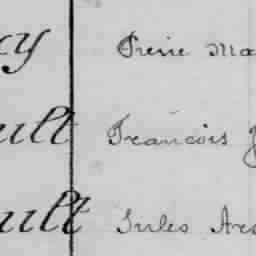 cy Pierre Ma
ult François J
ult Jules Ars